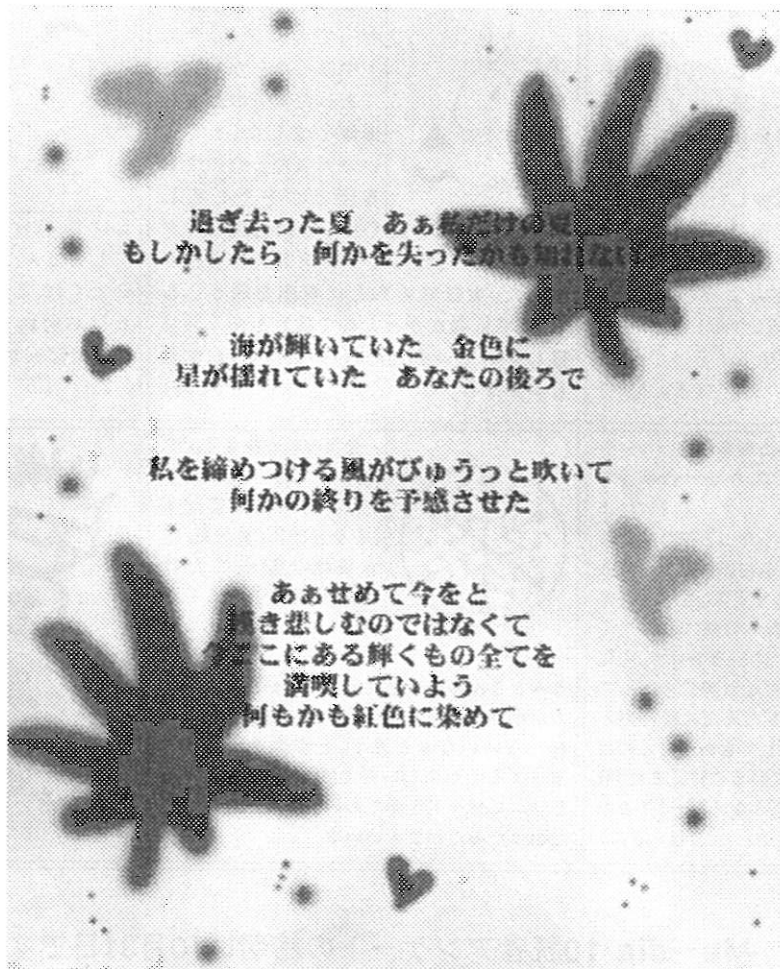 過ぎ去った夏　あぁ私だけの夏
もしかしたら　何かを失ったかも知れない
海が輝いていた　金色に
星が揺れていた　あなたの後ろで
私を締めつける風がびゅうっと吹いて
何かの終りを予感させた
あぁせめて今をと
嘆き悲しむのではなくて
今ここにある輝くもの全てを
満喫していよう
何もかも紅色に染めて